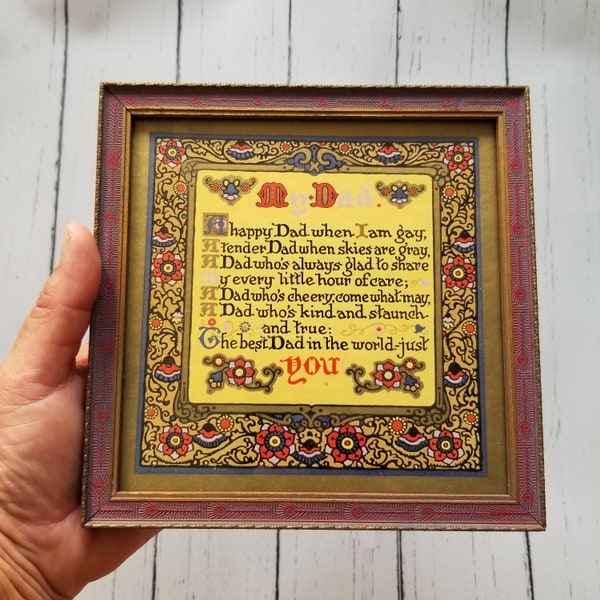 My Dad.
A happy Dad when I am gay,
A tender Dad when skies are gray,
A Dad who's always glad to share
My every little hour of care;
A Dad who's cheery, come what may,
A Dad who's kind and staunch
and true:
The best Dad in the world - just
YOU